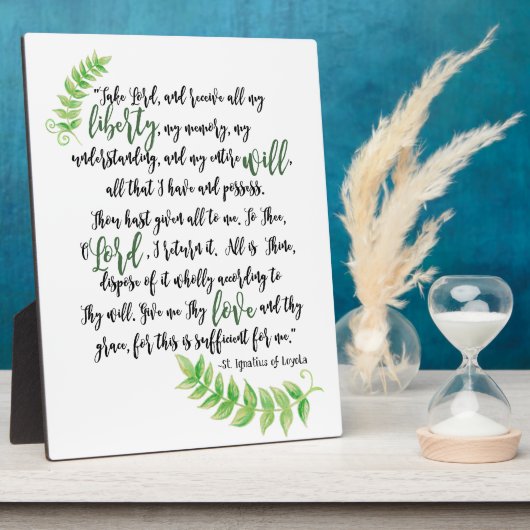 "Take Lord, and receive all my
liberty, my memory, my
understanding, and my entire will,
all that I have and possess.
Thou hast given all to me. To Thee,
O Lord, I return it. All is Thine,
dispose of it wholly according to
Thy will. Give me Thy love and thy
grace, for this is sufficient for me."
-St. Ignatius of Loyola